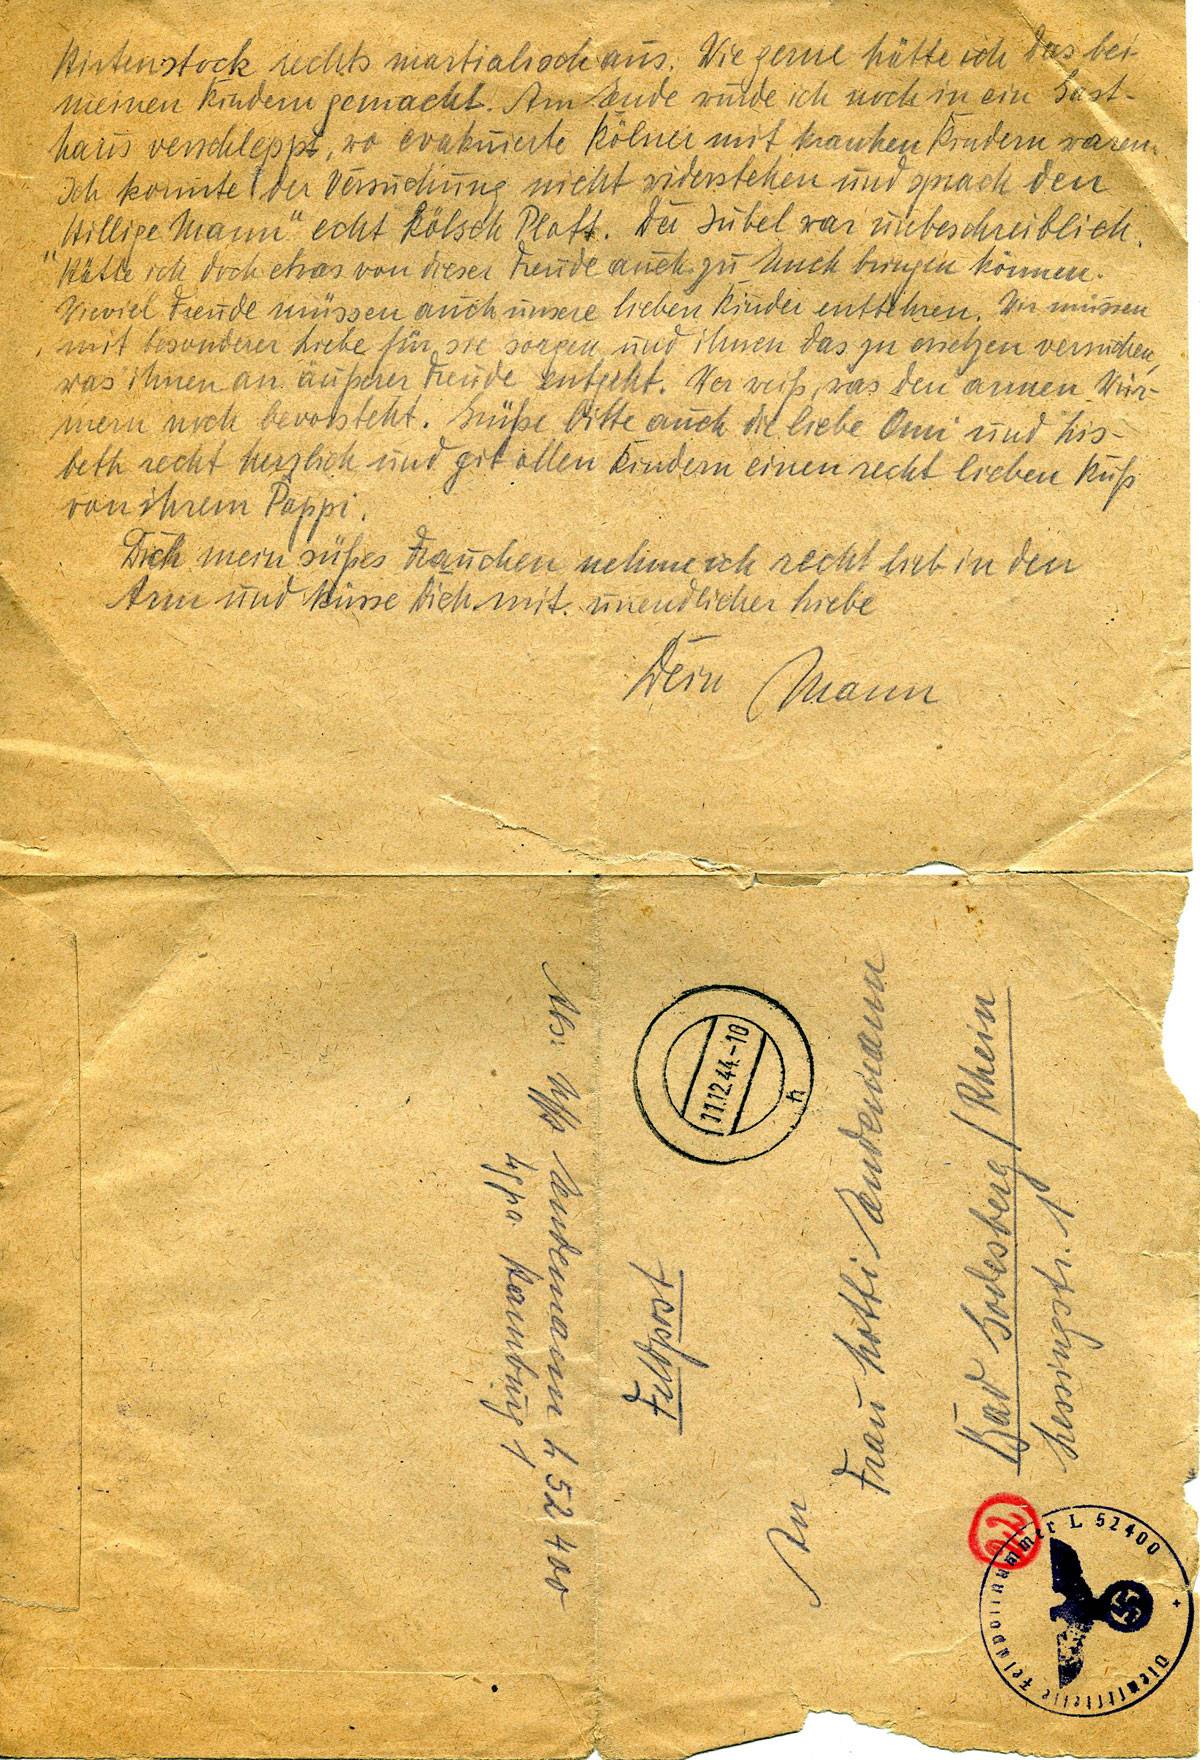 Hirtenstock rechts martialisch aus. Wie gerne hätte ich das bei
meinen Kindern gemacht. Am Ende wurde ich noch in ein Gast-
haus verschleppt, wo evakuierte Kölner mit kranken Kindern waren.
Ich konnte der Versuchung nicht widerstehen und sprach den
"Hillige Mann" echt Kölsch Platt. Der Jubel war unbeschreiblich.
Hätte ich doch etwas von dieser Freude auch zu Euch bringen können.
Wieviel Freude müssen auch unsere lieben Kinder entbehren. Wir müssen
mit besonderer Liebe für sie sorgen und ihnen das zu ersetzen versuchen,
was ihnen an äußerer Freude entgeht. Wer weiß, was den armen Wür-
mern noch bevorsteht. Grüße bitte auch die liebe Omi und Lis-
beth recht herzlich und gib allen Kindern einen recht lieben Kuß
von ihrem Pappi.
Dich mein süßes Frauchen nehme ich recht lieb in den
Arm und küsse Dich mit unendlicher Liebe
Dein Mann
An
Frau Lotti Endemann
Bad Godesberg/Rhein
Lessingstr. 1
Feldpost
11.12.44.-10
h
Abs: Uffz Endemann L 52 400
Lgpa. Hamburg 1
Dienststelle Feldpostnummer L 52400